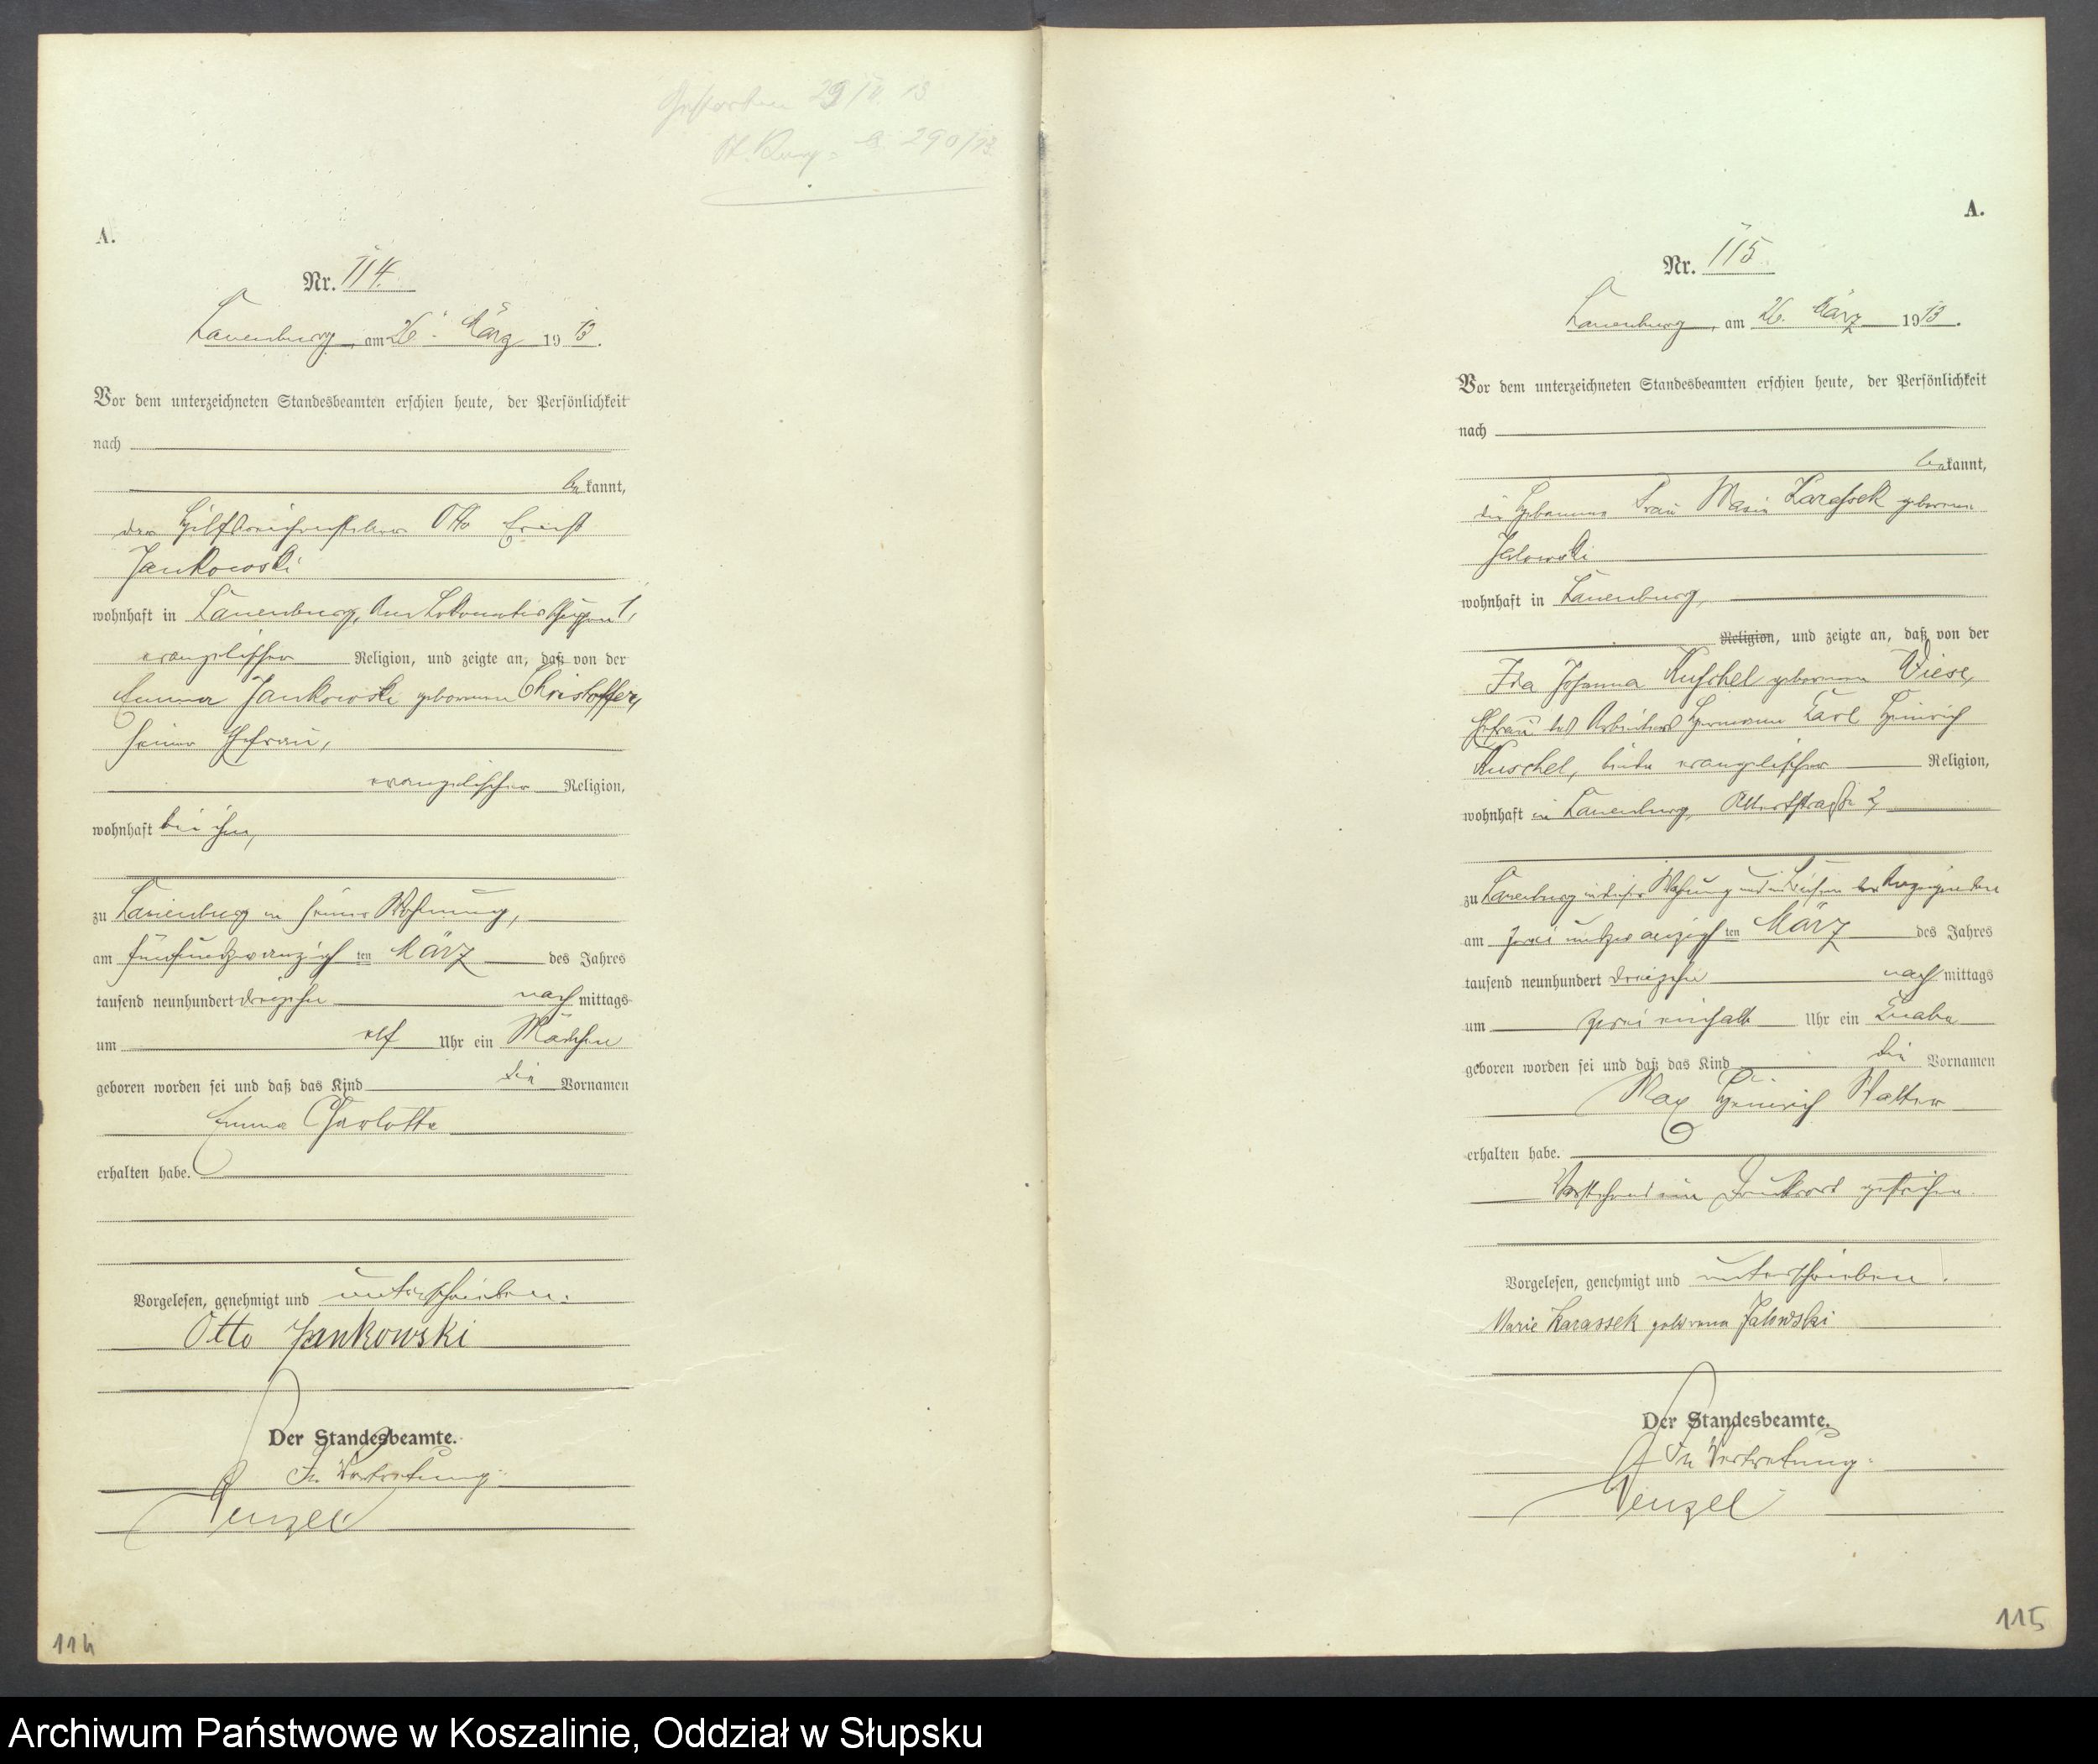 Gestorben 29/IV. 13
St. Reg. B 290/13
A.
Nr. 114.
Lauenburg, am 26. März 1913.
Vor dem unterzeichneten Standesbeamten erschien heute, der Persönlichkeit
nach
bekannt,
der Hilfsweichensteller Otto Ernst
Jankowski
wohnhaft in Lauenburg, Am Lokomotivschuppen 1,
evangelischer Religion, und zeigte an, daß von der
Emma Jankowski geborenen Christoffer,
seiner Ehefrau,
evangelischer Religion,
wohnhaft bei ihm,
zu Lauenburg in seiner Wohnung,
am fünfundzwanzigsten März des Jahres
tausend neunhundert dreizehn nachmittags
um elf Uhr ein Mädchen
geboren worden sei und daß das Kind die Vornamen
Emma Charlotte
erhalten habe.
Vorgelesen, genehmigt und unterschrieben.
Otto Jankowski
Der Standesbeamte.
In Vertretung.
Wenzel
114
A.
Nr. 115
Lauenburg, am 26. März 1913.
Vor dem unterzeichneten Standesbeamten erschien heute, der Persönlichkeit
nach
bekannt,
die Hebamme Frau Marie Karassek geborene
Jalowski
wohnhaft in Lauenburg,
Religion, und zeigte an, daß von der
Ida Johanna Kuschel geborenen Wiese,
Ehefrau des Arbeiters Hermann Karl Heinrich
Kuschel, beide evangelischer Religion,
wohnhaft in Lauenburg, Albertstraße 2,
zu Lauenburg in dieser Wohnung und in Beisein der Anzeigenden
am zweiundzwanzigsten März des Jahres
tausend neunhundert dreizehn nachmittags
um zwei einhalb Uhr ein Knabe
geboren worden sei und daß das Kind die Vornamen
Max Heinrich Walter
erhalten habe.
Vorstehend ein Druckwort gestrichen.
Vorgelesen, genehmigt und unterschrieben.
Marie Karassek geborene Jalowski
Der Standesbeamte.
In Vertretung.
Wenzel
115
Archiwum Państwowe w Koszalinie, Oddział w Słupsku